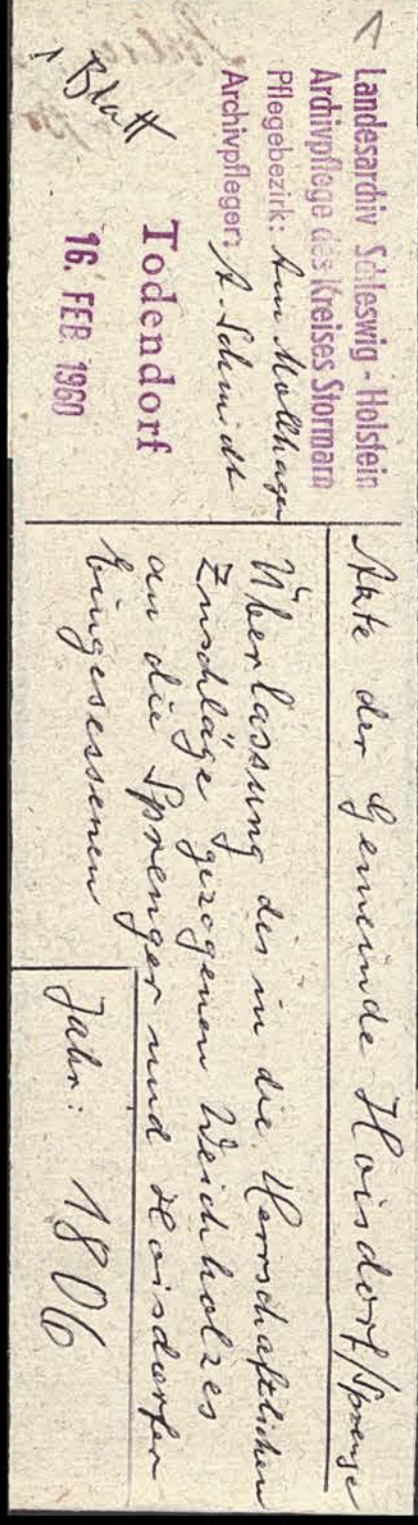 Landesarchiv Schleswig-Holstein
Archivpflege des Kreises Stormarn
Pflegebezirk: Am Mollhagen
Archivpfleger: A. Schmidt
Todendorf
16. FEB. 1960
1 Blatt
Akte der Gemeinde Hoisdorf/Sprenge
Überlassung des in die Herrschaftlichen
Zuschläge gezogenen Weichholzes
an die Sprenger und Hoisdorfer
Eingesessenen
Jahr: 1806